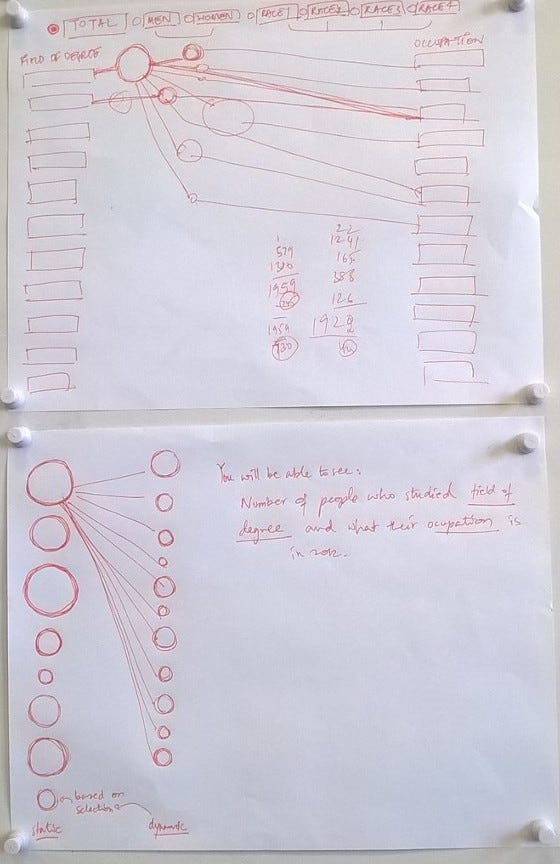 TOTAL MEN WOMEN RACE1 RACE2 RACE3 RACE4
FIELD OF DEGREE
OCCUPATION
579
1380
1959
1959
22
1241
165
388
126
You will be able to see:
Number of people who studied field of
degree and what their ocupation is
in 2012.
based on
selection
static
dynamic